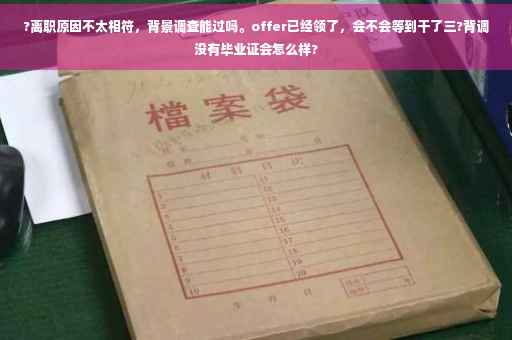 ?离职原因不太相符，背景调查能过吗。offer已经领了，会不会等到干了三?背调
没有毕业证会怎么样?
檔案袋
材料目次
1
2
3
4
5
6
7
8
9
10
11
12
13
14
15
16
17
18
19
20
年 月 日